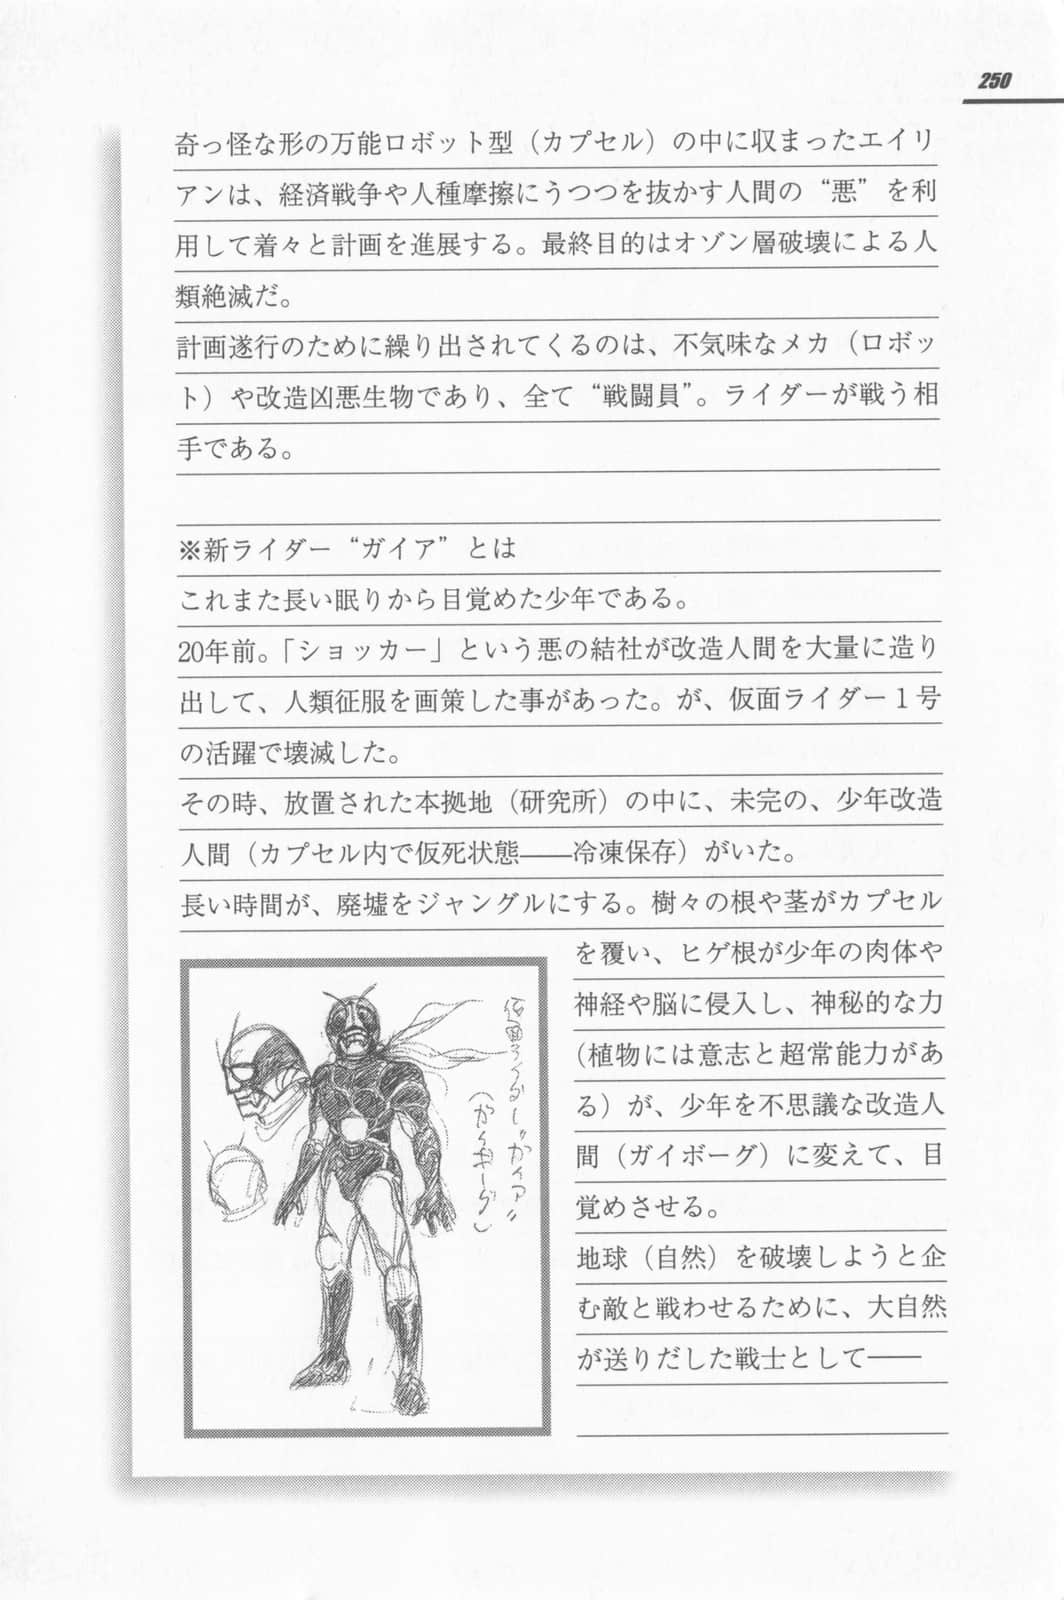 250
奇っ怪な形の万能ロボット型（カプセル）の中に収まったエイリ
アンは、経済戦争や人種摩擦にうつつを抜かす人間の“悪”を利
用して着々と計画を進展する。最終目的はオゾン層破壊による人
類絶滅だ。
計画遂行のために繰り出されてくるのは、不気味なメカ（ロボッ
ト）や改造凶悪生物であり、全て“戦闘員”。ライダーが戦う相
手である。
※新ライダー“ガイア”とは
これまた長い眠りから目覚めた少年である。
20年前。「ショッカー」という悪の結社が改造人間を大量に造り
出して、人類征服を画策した事があった。が、仮面ライダー１号
の活躍で壊滅した。
その時、放置された本拠地（研究所）の中に、未完の、少年改造
人間（カプセル内で仮死状態――冷凍保存）がいた。
長い時間が、廃墟をジャングルにする。樹々の根や茎がカプセル
を覆い、ヒゲ根が少年の肉体や
神経や脳に侵入し、神秘的な力
（植物には意志と超常能力があ
る）が、少年を不思議な改造人
間（ガイボーグ）に変えて、目
覚めさせる。
地球（自然）を破壊しようと企
む敵と戦わせるために、大自然
が送りだした戦士として――
仮面ライダー“ガイア”
（ガイボーグ）